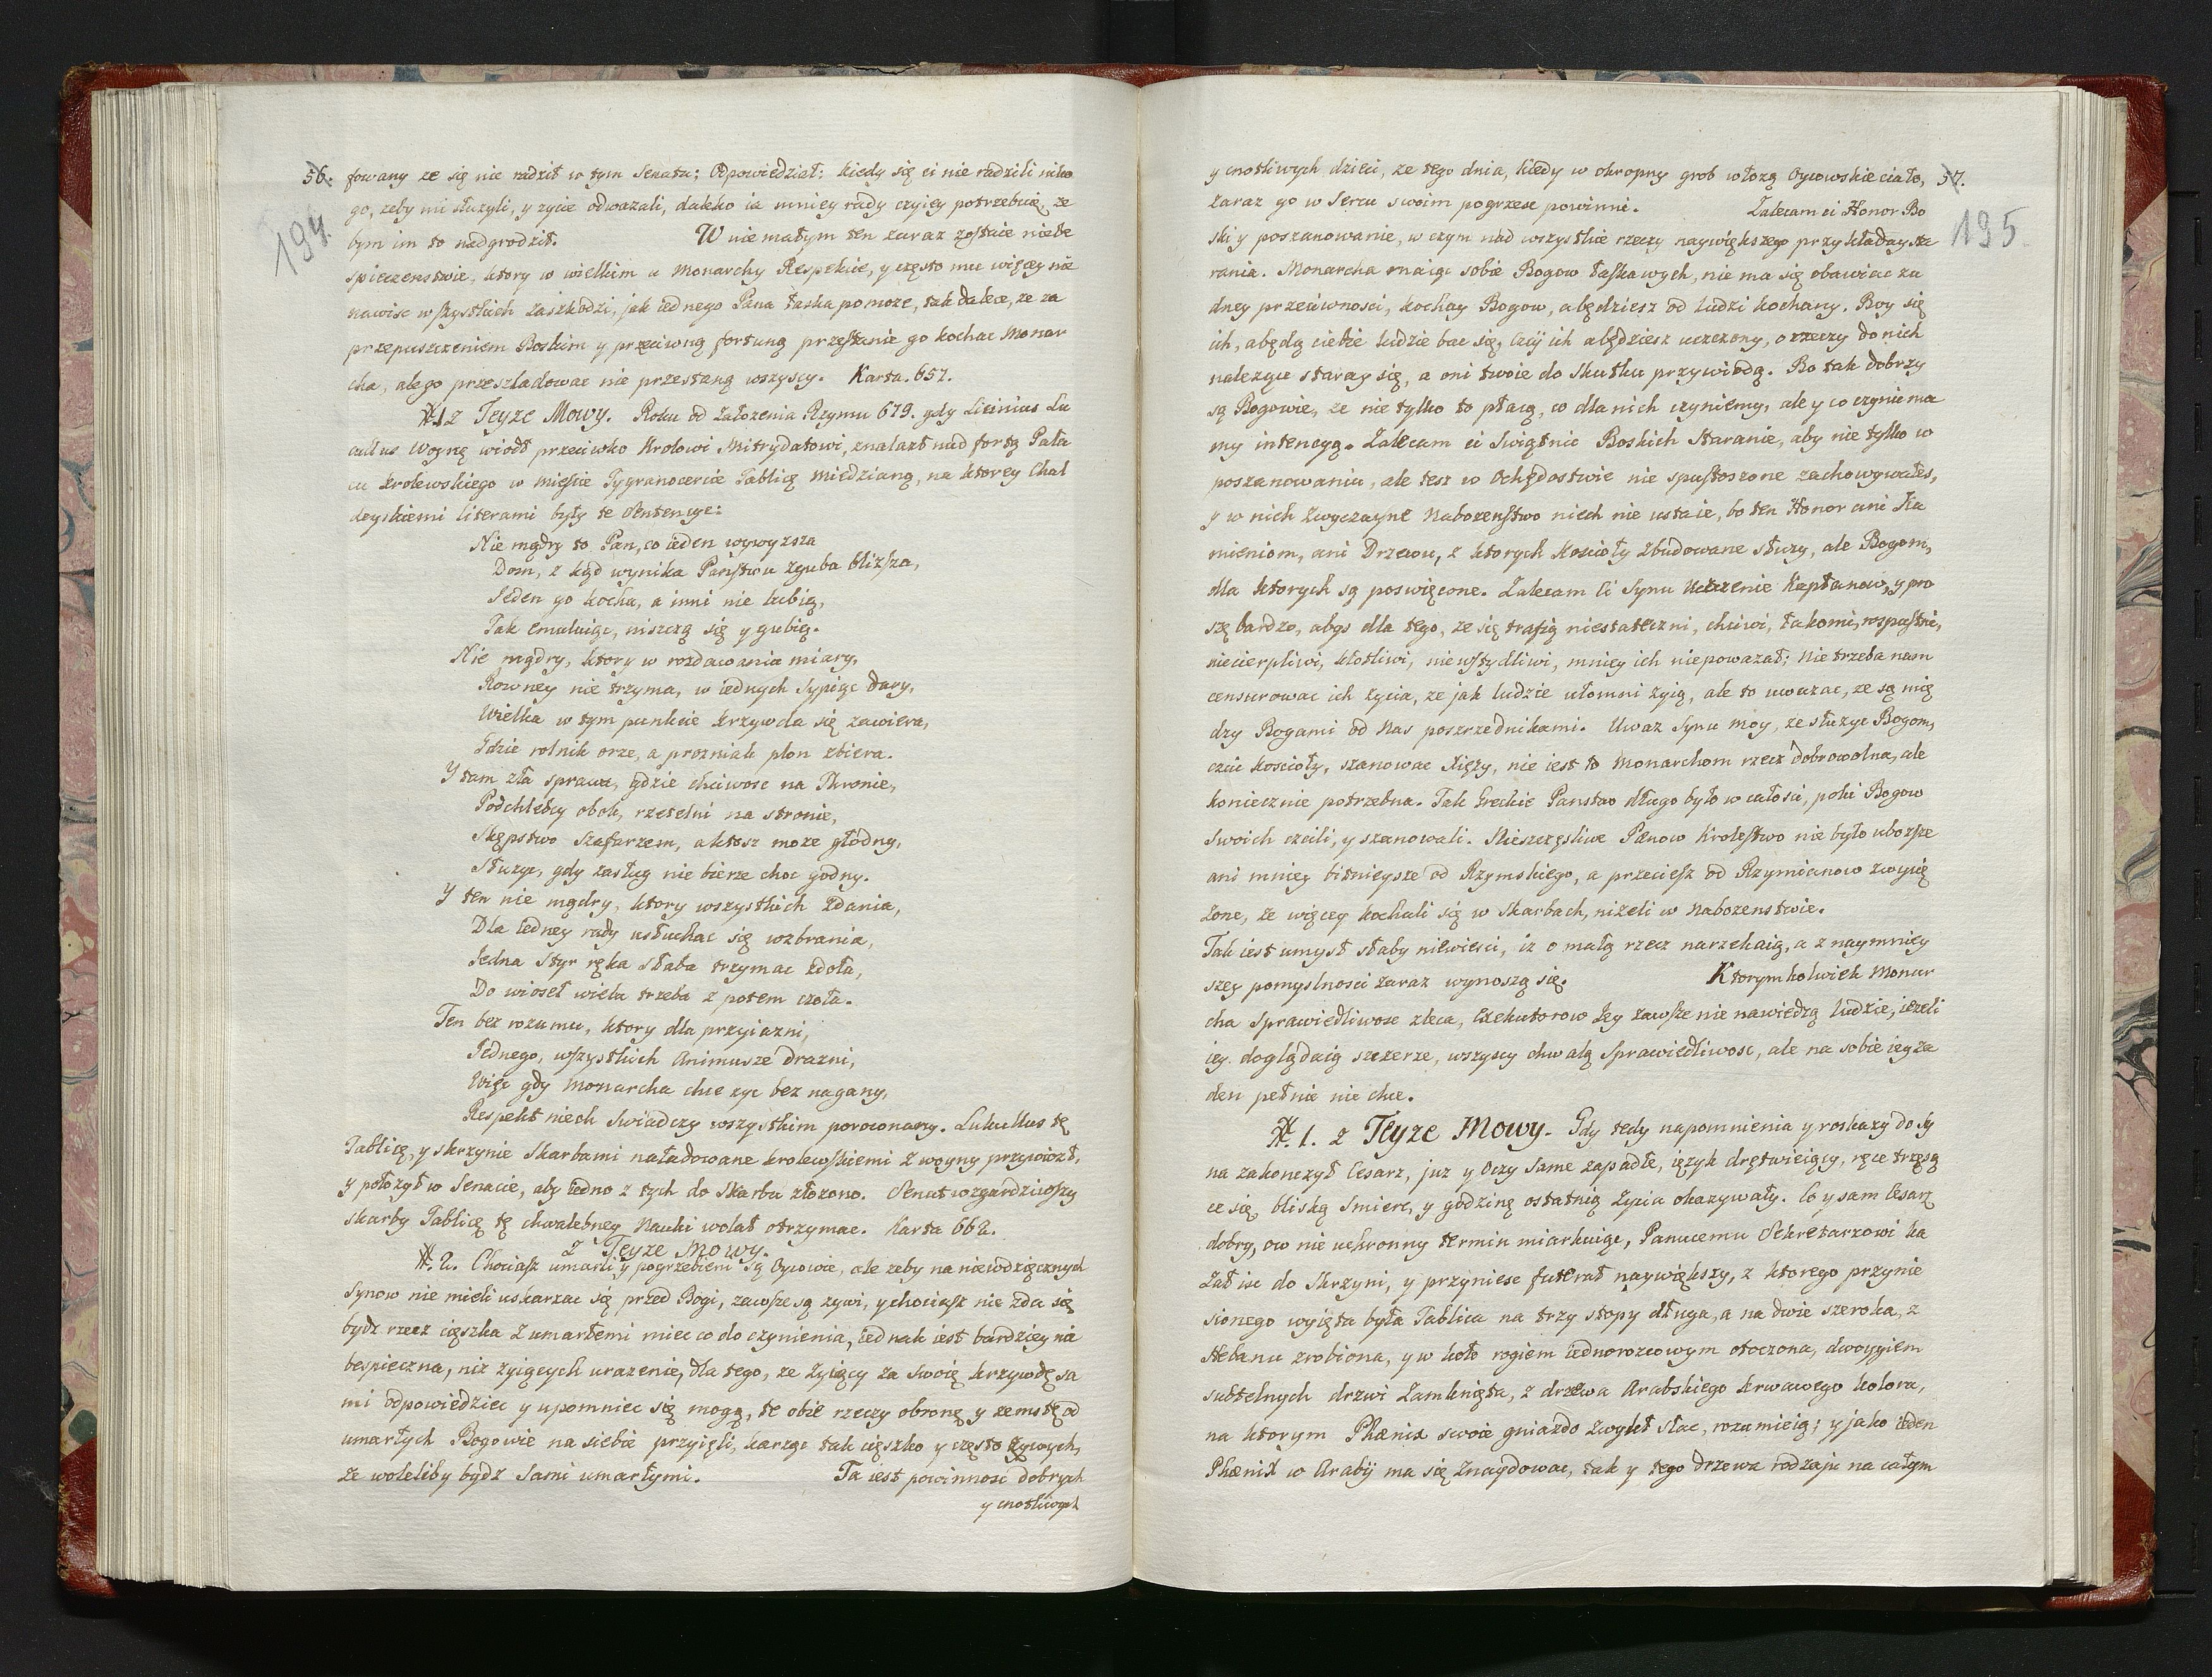 56. fowany ze się nie radził w tym Senatu; Odpowiedział: kiedy się ci nie radzili niko
194.
go, zeby mi słuzyli, y zycie odwazali, daleko ia mniey rady czyiey potrzebuię, ze
bym im to nadgrodził. W nie małym ten zaraz zostaie niebe
spieczenstwie, ktory w wielkim u Monarchy Respekcie, y często mu więcey nie
nawisc wszystkich zaszkodzi, jak iednego Pana łaska pomoze, tak dalece, ze za
przepuszczeniem Boskim y przeciwną fortuną przestanie go kochac Monar
cha, alego przesladowac nie przestaną wszyscy. Karta. 657.
#1 z Teyze Mowy. Roku od Załozenia Rzymu 679. gdy Licinius Lu
cullus Woynę wiodł przeciwko Krolowi Mitrydatowi, znalazł nad fortą Pała
cu krolewskiego w mieście Tygranocercie Tablicę miedzianą, na ktorey Chal
deyskiemi literami były te Sentencye:
Nie mądry to Pan, co ieden wywyzsza
Dom, z kąd wynika Państwu zguba bliższa,
Jeden go kocha, a inni nie lubią,
Tak emuluiąc, niszczą się y gubią.
Nie mądry, ktory w rozdawania miary,
Rowney nie trzyma, w iednych sypiąc dary,
Wielka w tym punkcie krzywda się zawiera,
Gdzie rolnik orze, a prozniak plon zbiera.
Y tam zła sprawa, gdzie chciwosc na Thronie,
Podchlebcy obok, rzetelni na stronie,
Skępstwo Szafarzem, a ktosz moze głodny,
Słuzyc, gdy zasług nie bierze choc godny.
Y ten nie mądry, ktory wszystkich zdania,
Dla iedney rady usłuchac się wzbrania,
Jedna styr ręka słaba trzymac zdoła,
Do wioseł wiela trzeba z potem czoła.
Ten bez rozumu, ktory dla przyiazni,
Jednego, wszystkich Animusze drazni,
Więc gdy Monarcha chce zyc bez nagany,
Respekt niech swiadczy wszystkim porownany. Lukullus tę
Tablicę, y skrzynie Skarbami naładowane krolewskiemi z woyny przywiozł,
y połozył w Senacie, aby iedno z tych do Skarbu złozono. Senat wzgardziwszy
skarby Tablicę tę chwalebney Nauki wolał otrzymac. Karta 662.
z Teyze Mowy.
#. 2. Chociasz umarli y pogrzebieni są Oycowie, ale zeby na niewdzięcznych
Synow nie mieli uskarzac się przed Bogi, zawsze są zywi, y chociasz nie zda się
bydz rzecz cięszka z umarłemi miec co do czynienia, iednak iest bardziey nie
bespieczna, niz zyiących urazenie, dla tego, ze zyiący za swoię krzywdę sa
mi odpowiedziec y upomniec się mogą, te obie rzeczy obronę y zemstę od
umarłych Bogowie na siebie przyięli, karząc tak cięszko y często zywych,
ze woleliby bydz sami umarłymi. Ta iest powinnosc dobrych
y cnotliwych
y cnotliwych dzieci, ze tego dnia, kiedy w okropny grob włozą Oycowskie ciało, 57.
zaraz go w Sercu swoim pogrzesc powinni. Zalecam ci Honor Bo
195
ski y poszanowanie, w czym nad wszystkie rzeczy naywiększego przykładay sta
rania. Monarcha maiąc sobie Bogow łaskawych, nie ma się obawiac za
dney przeciwnosci, kochay Bogow, a będziesz od ludzi kochany. Boy się
ich, a będą ciebie ludzie bac się, Czcij ich a będziesz uczczony, o rzeczy do nich
nalezące staray się, a oni twoie do Skutku przywiodą. Bo tak dobrzy
są Bogowie, ze nie tylko to płacą, co dla nich czyniemy, ale y co czyniema
my intencyą. Zalecam ci Swiątnic Boskich staranie, aby nie tylko w
poszanowaniu, ale tesz w Ochędostwie nie spustoszone zachowywałes,
y w nich zwyczayne Nabozenstwo niech nie ustaie, bo ten Honor ani Ka
mieniom, ani Drzewu, z ktorych Koscioły zbudowane słuzy, ale Bogom,
dla ktorych są poswięcone. Zalecam Ci Synu Uczczenie Kapłanow, y pro
szę bardzo, abys dla tego, ze się trafią niestateczni, chciwi, łakomi, rospustni,
niecierpliwi, kłotliwi, niewstydliwi, mniey ich niepowazał; Nie trzeba nam
censurowac ich zycia, ze jak ludzie ułomni zyią, ale to uwazac, ze są mię
dzy Bogami od Nas poszrzednikami. Uwaz Synu moy, ze słuzyc Bogom,
czcic koscioły, szanowac Xięzy, nie iest to Monarchom rzecz dobrowolna, ale
koniecznie potrzebna. Tak Greckie Panstwo długo było w całosci, poki Bogow
Swoich czcili, y szanowali. Nieszczęsliwe Pænow Krolestwo nie było ubozsze
ani mniey bitnieysze od Rzymskiego, a przeciesz od Rzymianow zwycię
zone, ze więcey kochali się w Skarbach, nizeli w Nabozenstwie.
Tak iest umysł słaby niewiesci, iz o małą rzecz narzekaią, a z naymniey
szey pomyslnosci zaraz wynoszą się. Ktorymkolwiek Monar
cha Sprawiedliwosc zleca, Exekutorow Jey zawsze nie nawiedzą ludzie, iezeli
iey doglądaią szczerze, wszyscy chwalą Sprawiedliwosc, ale na sobie iey za
den pełnic nie chce.
#. 1. z Teyze Mowy. Gdy tedy napomnienia y roskazy do Sy
na zakonczył Cesarz, juz y Oczy same zapadłe, ięzyk drętwieiący, ręce trzęsą
ce się, bliską smierc, y godzinę ostatnią zycia okazywały. Co y sam Cesarz
dobry, ow nie uchronny termin miarkuiąc, Panucemu Sekretarzowi ka
zał isc do Skrzyni, y przyniesc futerał naywiększy, z ktorego przynie
sionego wyięta była Tablica na trzy stopy długa, a na dwie szeroka, z
Hebanu zrobiona, y w koło rogiem iednorozcowym otoczona, dwoygiem
subtelnych drzwi zamknięta, z drzewa Arabskiego krwawego koloru,
na ktorym Phænix swoie gniazdo zwykł słac, rozumieią; y jako ieden
Phænix w Arabij ma się znaydowac, tak y tego drzewa rodzaju na całym